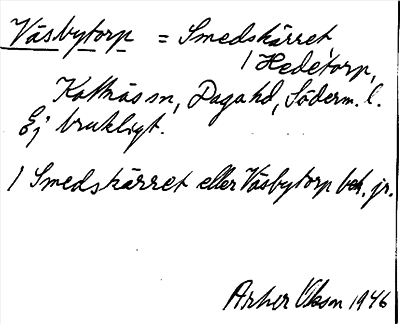 Väsbytorp = Smedskärret
/ Hedetorp,
Kattnäs sn, Daga hd, Söderm. l.
Ej brukligt.
/ Smedskärret eller Väsbytorp bet. jr.
1946